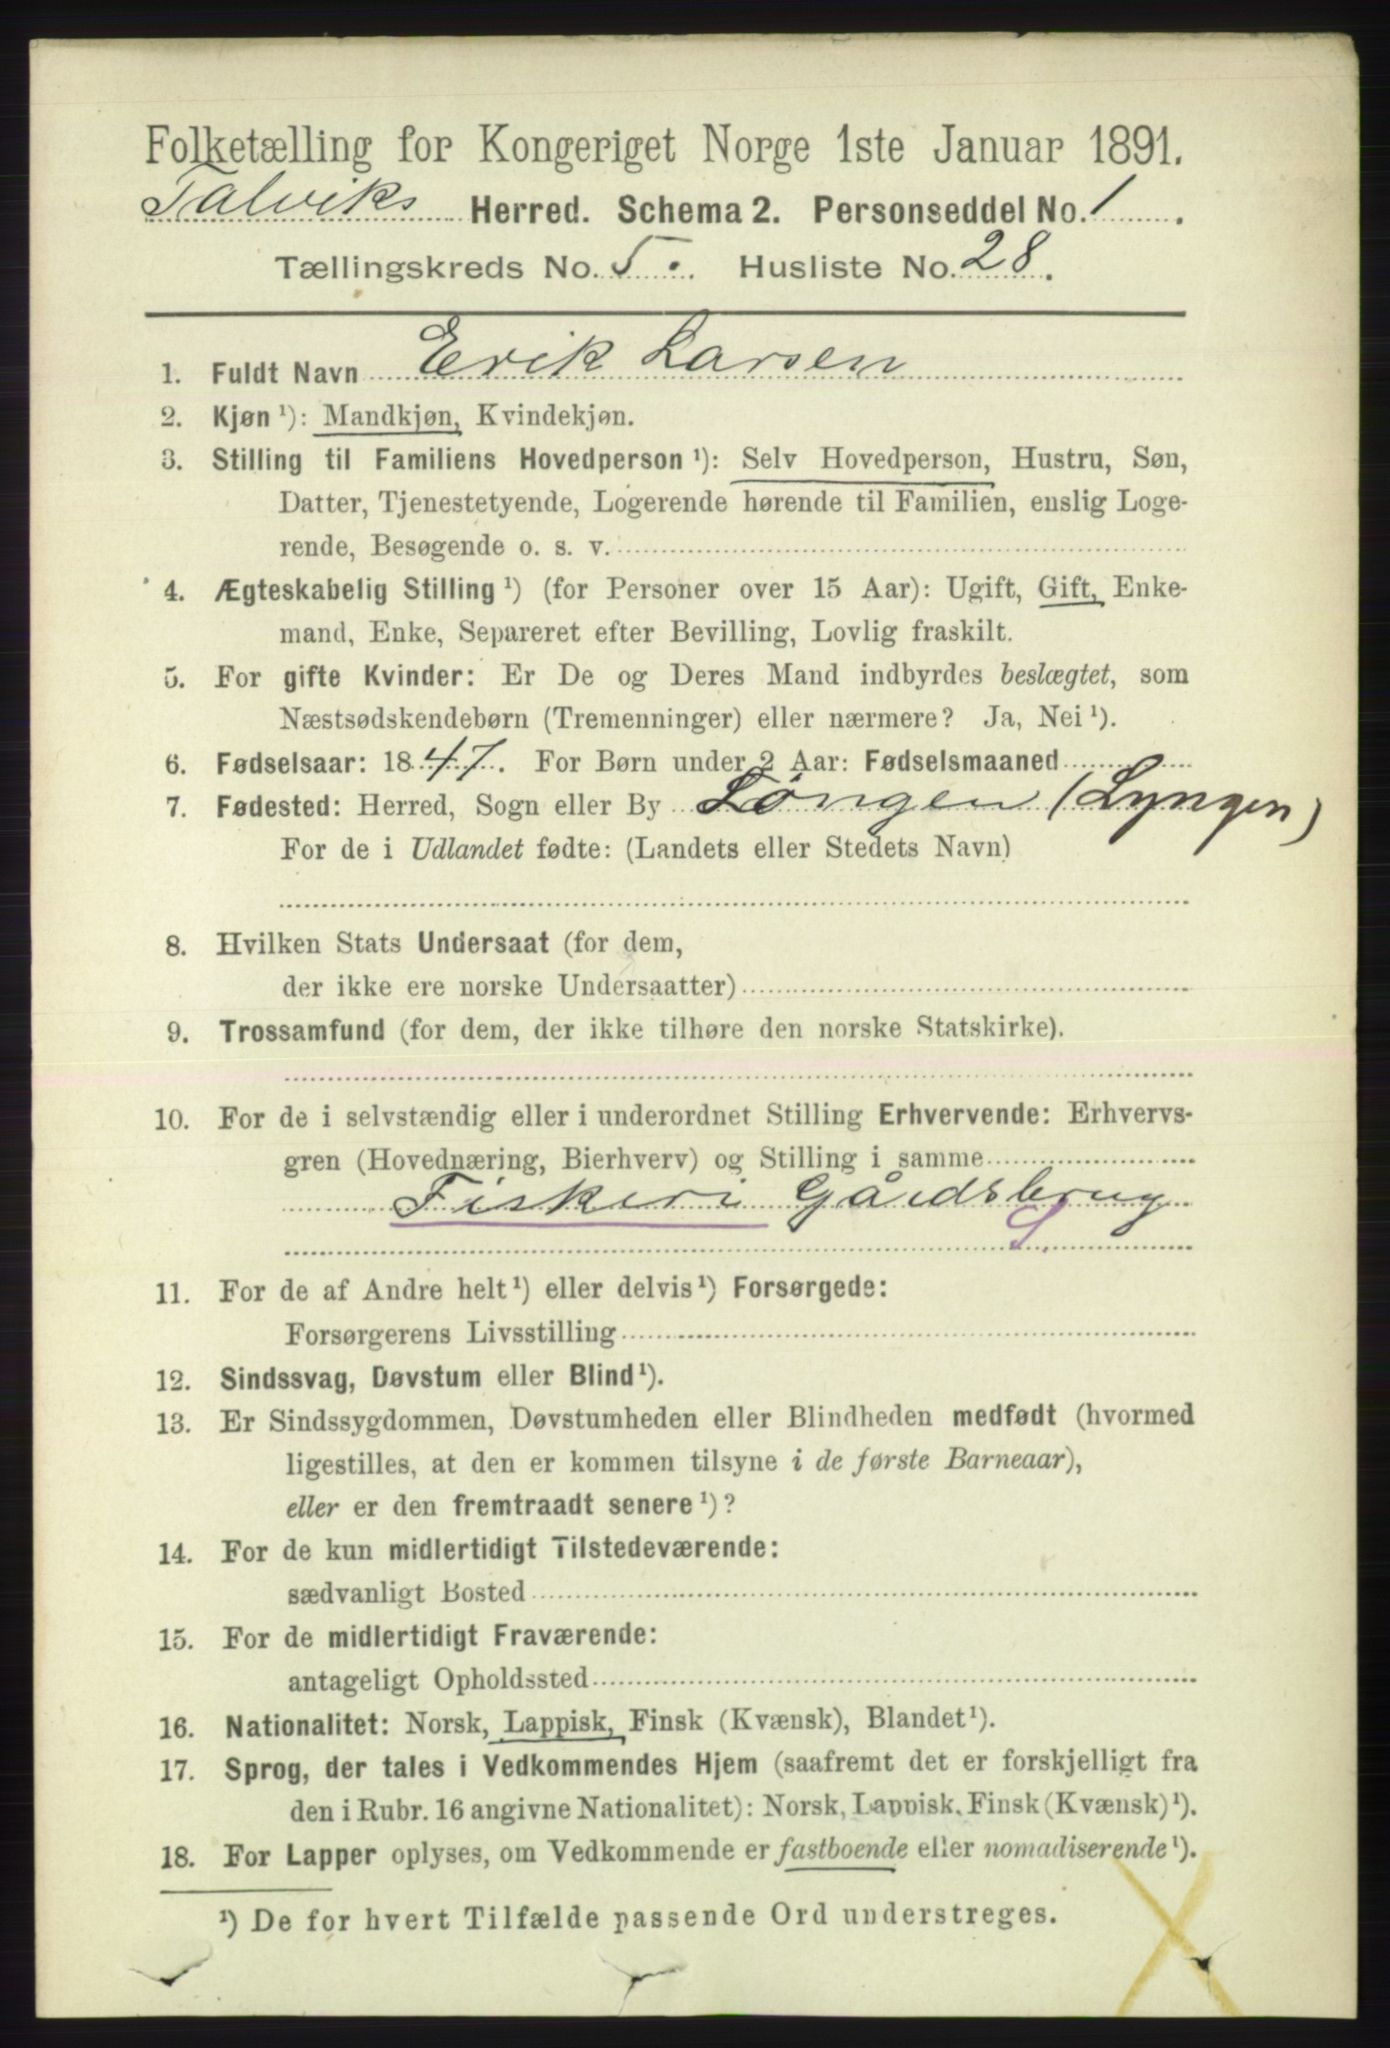 Folketælling for Kongeriget Norge 1ste Januar 1891.
Talviks Herred. Schema 2. Personseddel No. 1.
Tællingskreds No. 5. Husliste No. 28.
1. Fuldt Navn Erik Larsen
2. Kjøn ¹): Mandkjøn, Kvindekjøn.
3. Stilling til Familiens Hovedperson ¹): Selv Hovedperson, Hustru, Søn,
Datter, Tjenestetyende, Logerende hørende til Familien, enslig Loge-
rende, Besøgende o. s. v.
4. Ægteskabelig Stilling ¹) (for Personer over 15 Aar): Ugift, Gift, Enke-
mand, Enke, Separeret efter Bevilling, Lovlig fraskilt.
5. For gifte Kvinder: Er De og Deres Mand indbyrdes beslægtet, som
Næstsødskendebørn (Tremenninger) eller nærmere? Ja, Nei ¹).
6. Fødselsaar: 1847. For Børn under 2 Aar: Fødselsmaaned
7. Fødested: Herred, Sogn eller By Löngen (Lyngen)
For de i Udlandet fødte: (Landets eller Stedets Navn)
8. Hvilken Stats Undersaat (for dem,
der ikke ere norske Undersaatter)
9. Trossamfund (for dem, der ikke tilhøre den norske Statskirke).
10. For de i selvstændig eller i underordnet Stilling Erhvervende: Erhvervs-
gren (Hovednæring, Bierhverv) og Stilling i samme
Fiskeri Gårdsbrug
S.
11. For de af Andre helt ¹) eller delvis ¹) Forsørgede:
Forsørgerens Livsstilling
12. Sindssvag, Døvstum eller Blind ¹).
13. Er Sindssygdommen, Døvstumheden eller Blindheden medfødt (hvormed
ligestilles, at den er kommen tilsyne i de første Barneaar),
eller er den fremtraadt senere ¹)?
14. For de kun midlertidigt Tilstedeværende:
sædvanligt Bosted
15. For de midlertidigt Fraværende:
antageligt Opholdssted
16. Nationalitet: Norsk, Lappisk, Finsk (Kvænsk), Blandet ¹).
17. Sprog, der tales i Vedkommendes Hjem (saafremt det er forskjelligt fra
den i Rubr. 16 angivne Nationalitet): Norsk, Lappisk, Finsk (Kvænsk) ¹).
18. For Lapper oplyses, om Vedkommende er fastboende eller nomadiserende ¹).
¹) De for hvert Tilfælde passende Ord understreges.